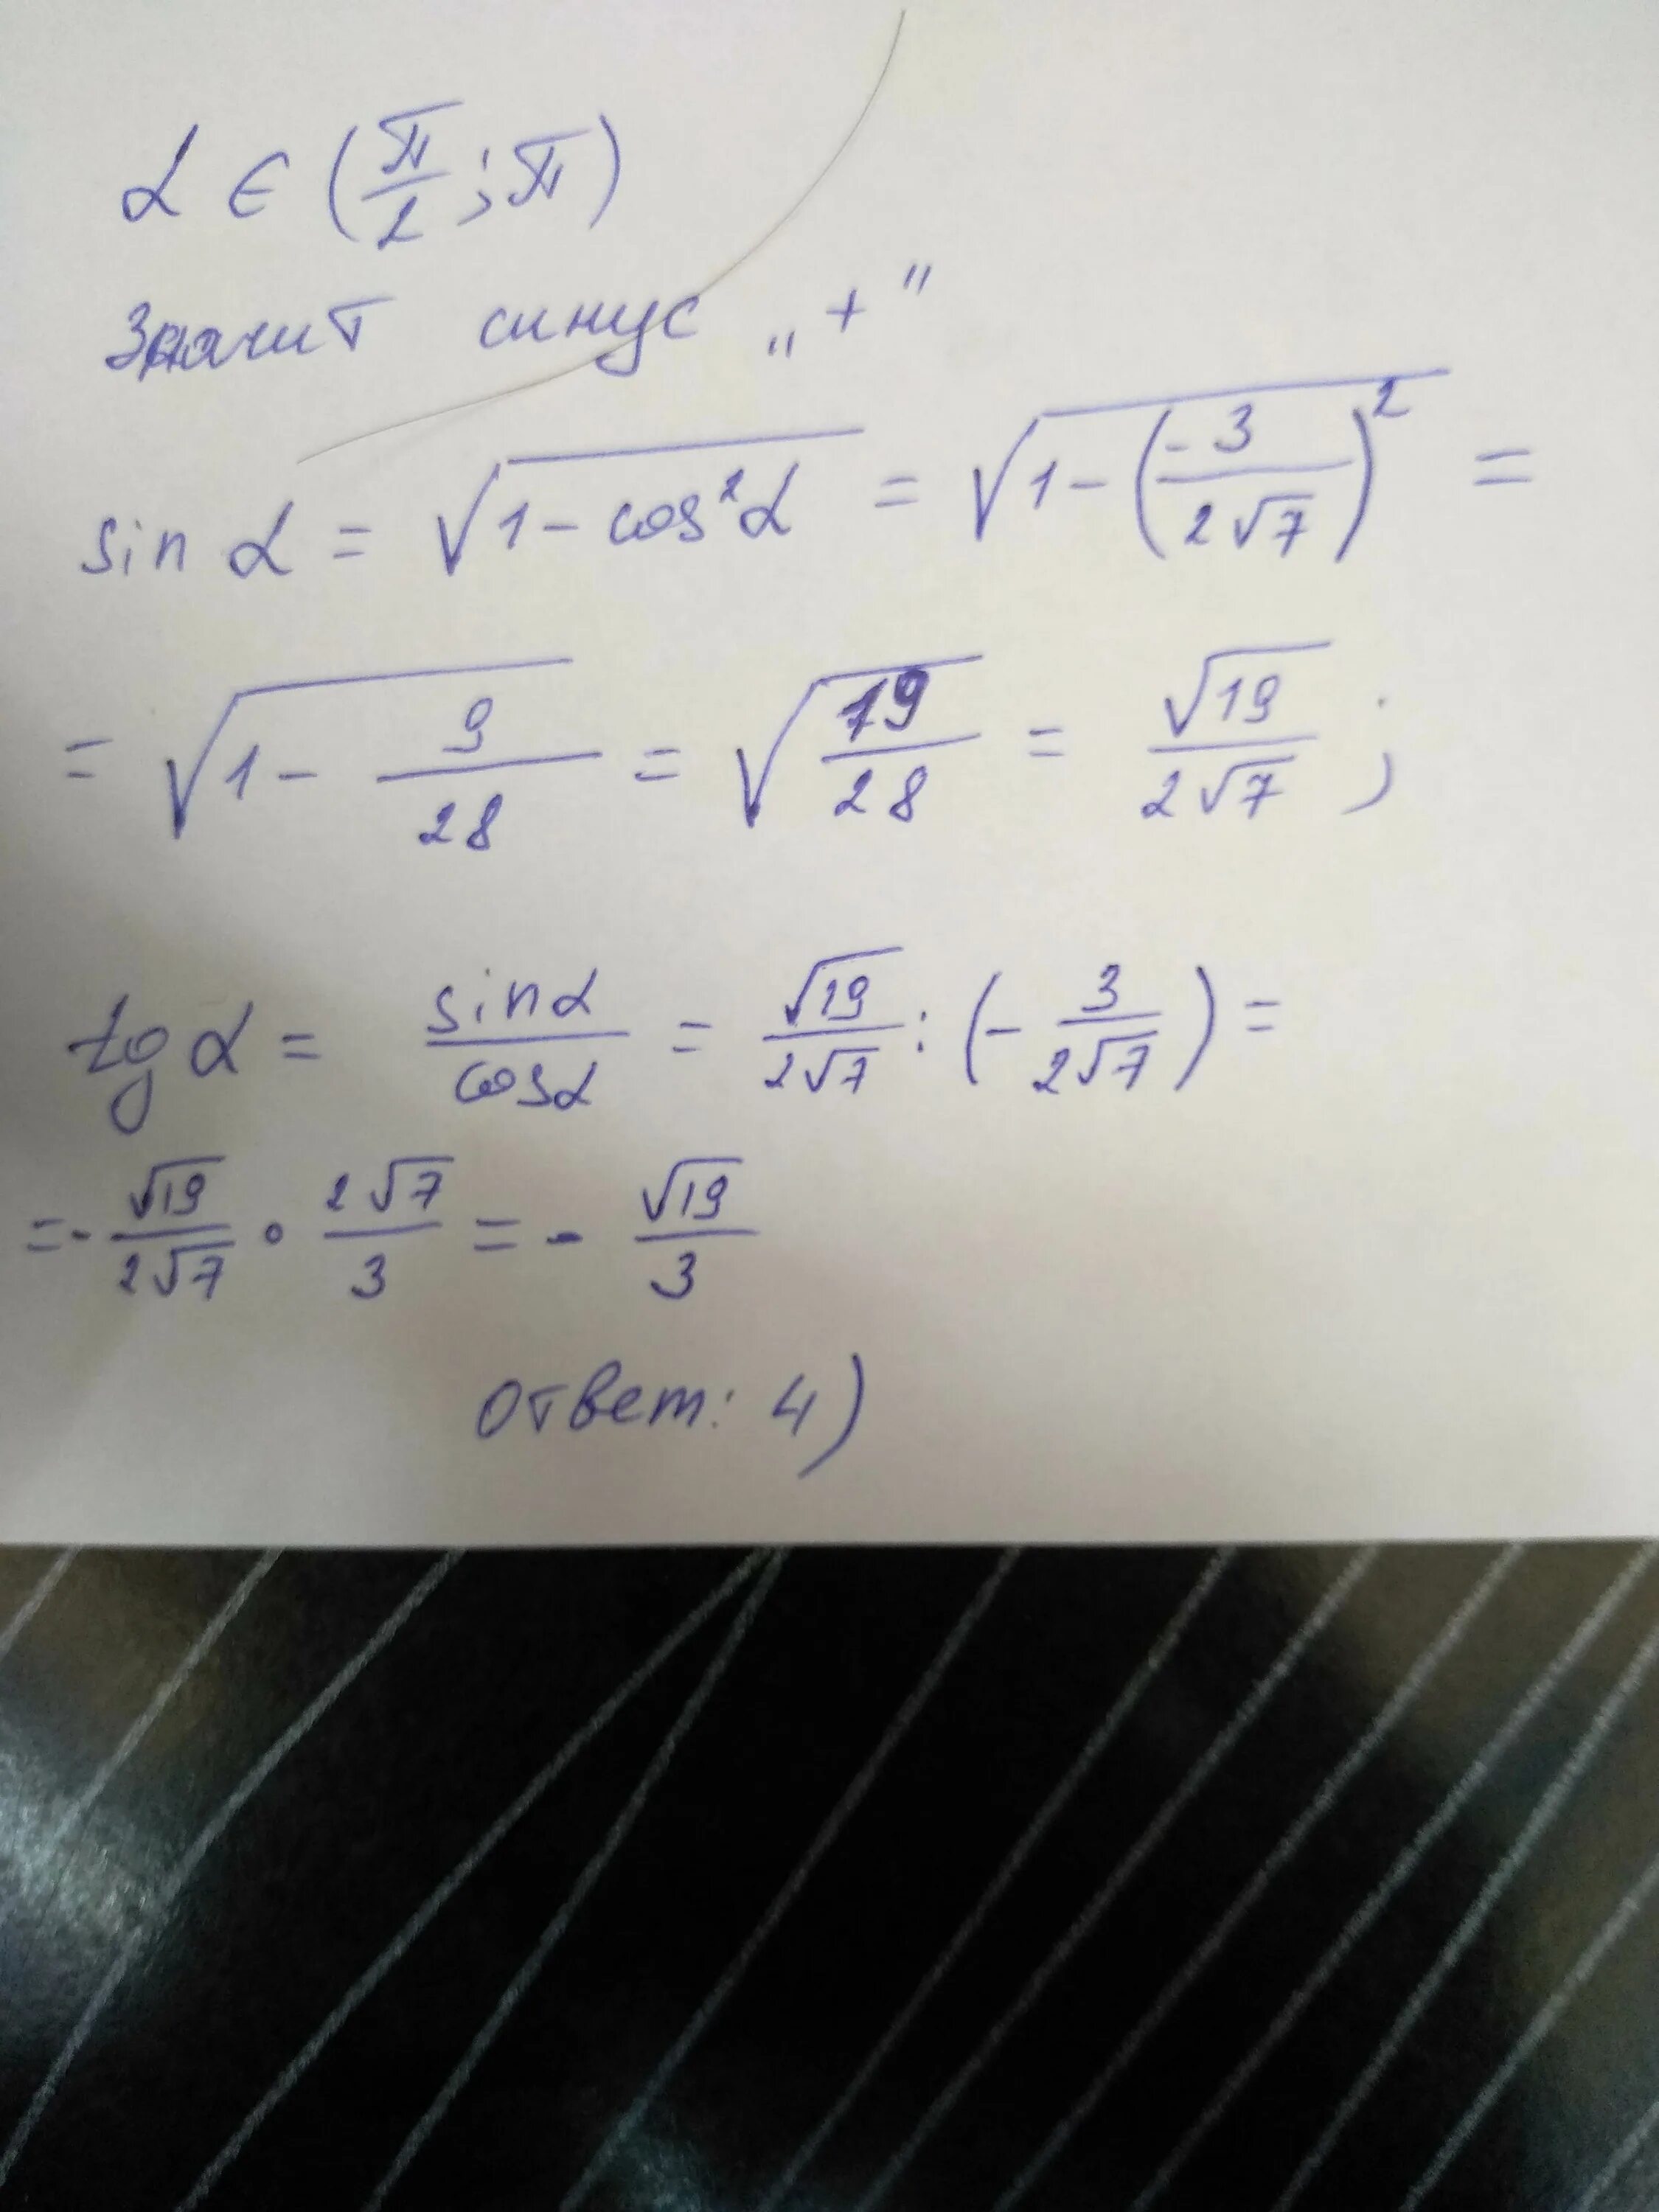 α ∈ (π/2; π)
Значит синус „+"
sin α = √(1 - cos²α) = √(1 - (-3/(2√7))²) =
= √(1 - 9/28) = √(19/28) = √19/(2√7);
tg α = sinα/cosα = √19/(2√7) : (-3/(2√7)) =
= - √19/(2√7) · 2√7/3 = - √19/3
Ответ: 4)